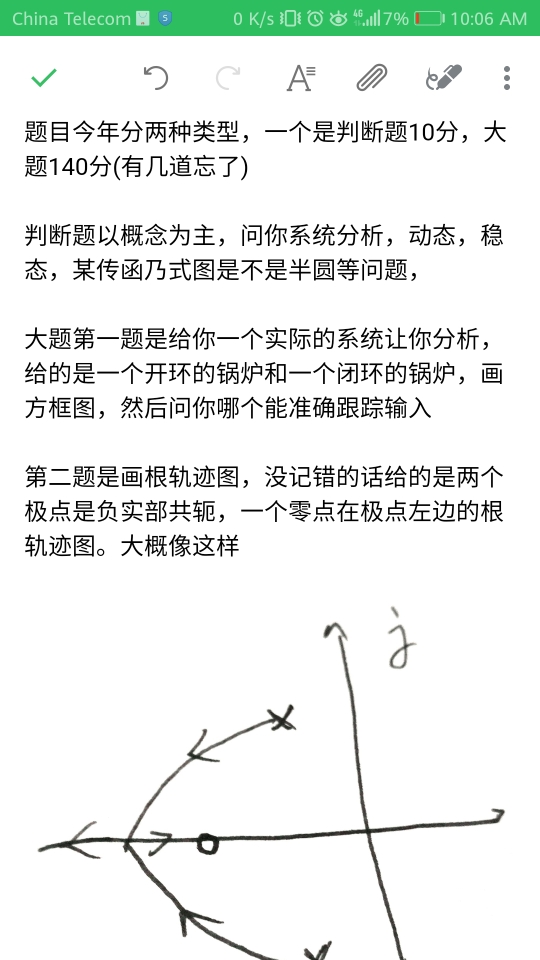 China Telecom 0 K/s 4G 7% 10:06 AM
题目今年分两种类型，一个是判断题10分，大
题140分(有几道忘了)
判断题以概念为主，问你系统分析，动态，稳
态，某传函乃式图是不是半圆等问题，
大题第一题是给你一个实际的系统让你分析，
给的是一个开环的锅炉和一个闭环的锅炉，画
方框图，然后问你哪个能准确跟踪输入
第二题是画根轨迹图，没记错的话给的是两个
极点是负实部共轭，一个零点在极点左边的根
轨迹图。大概像这样
j